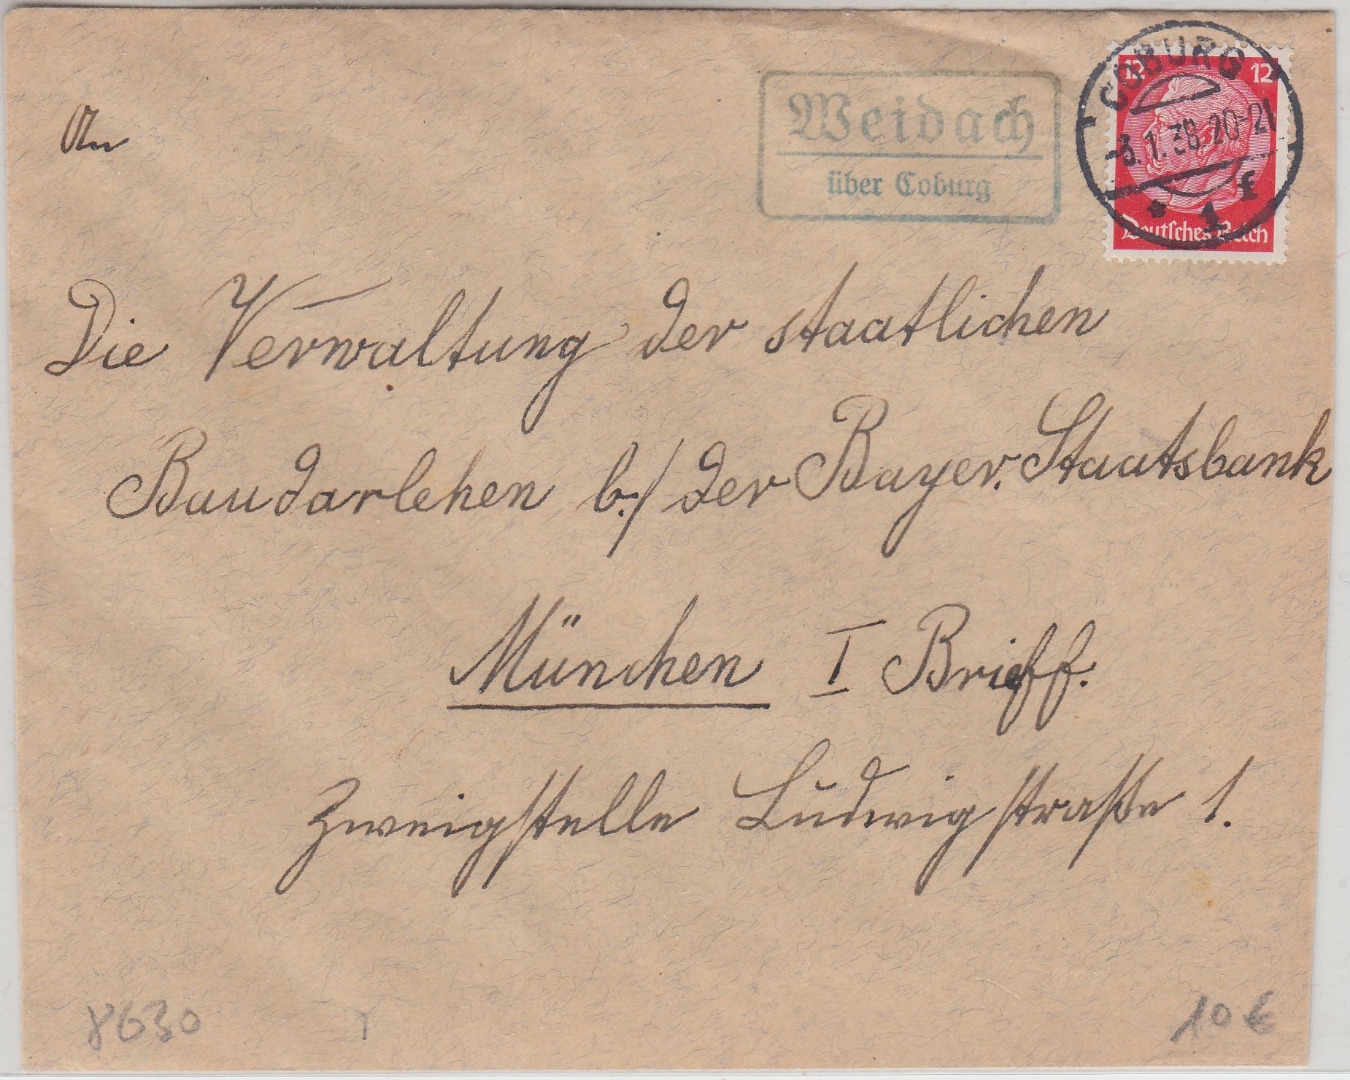 An
Weidach
über Coburg
COBURG
-3.1.38.20-21
* 1 f
12 12
Deutsches Reich
Die Verwaltung der staatlichen
Baudarlehen b./ der Bayer. Staatsbank
München I Brieff.
Zweigstelle Ludwigstraße 1.
8630
10 €